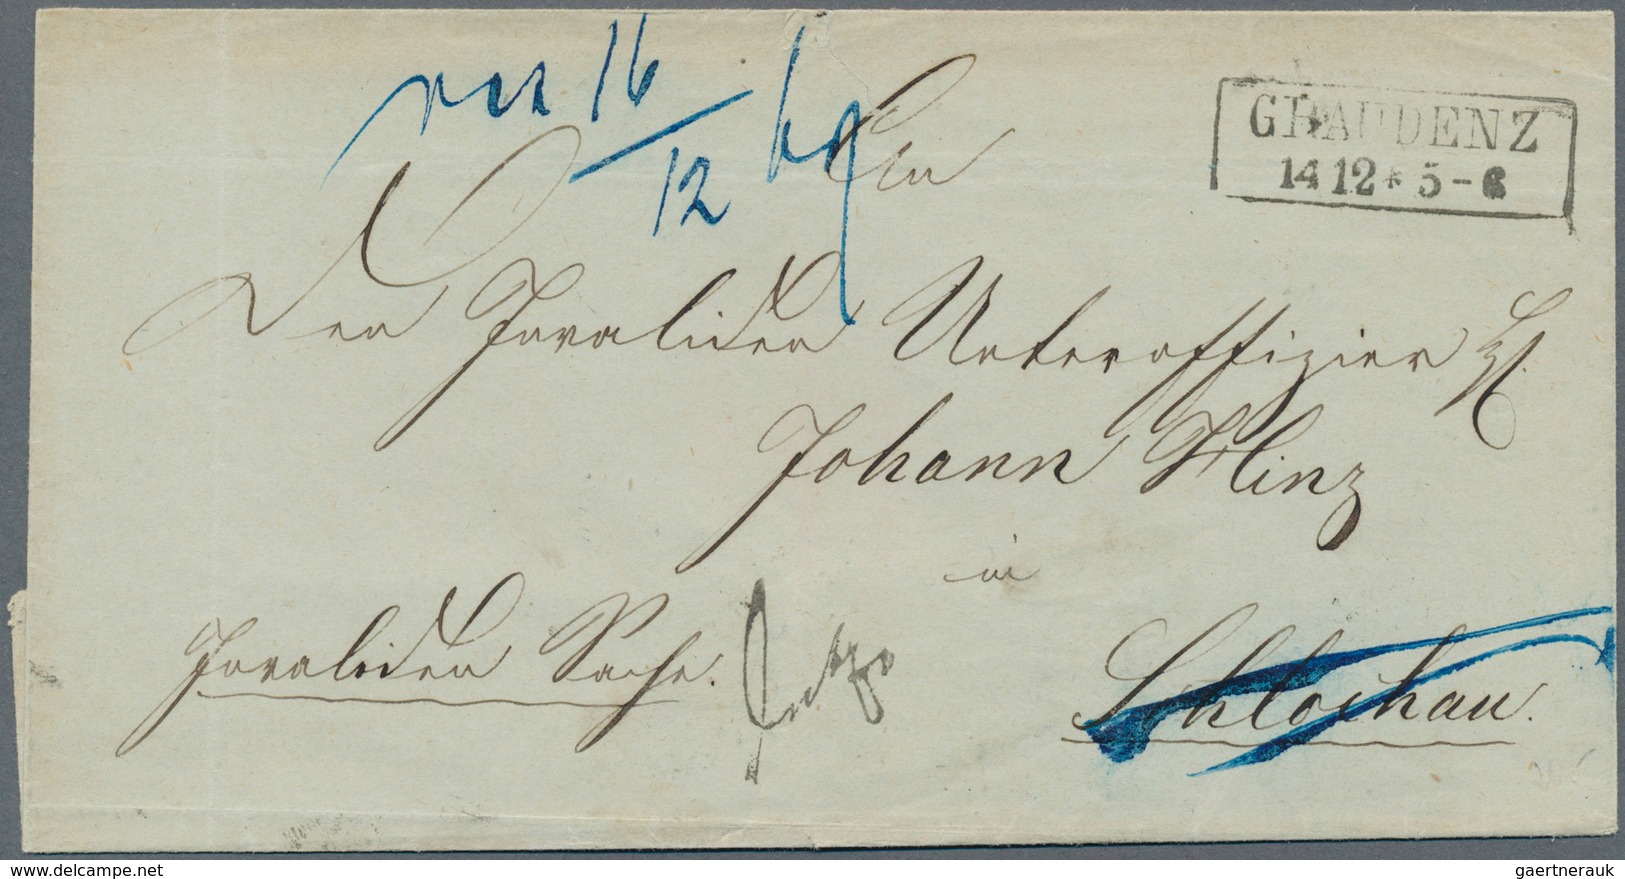 16
12
GRAUDENZ
14 12 * 5-6
An
Den Invaliden Unteroffizier H.
Johann Hinz
in
Invaliden Sache.
Schlochau.
gaertnerauk